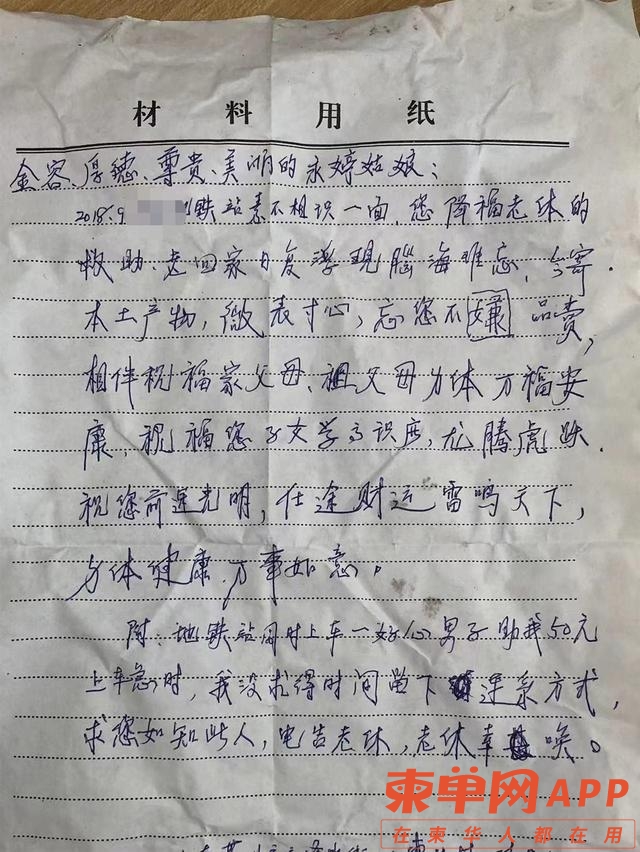 材料用纸
金容、厚德、尊贵、美丽的永婷姑娘:
2018.9 铁站素不相识一面,您降福老休的
救助.老回家日复浮现腦海难忘,今寄.
本土产物,微表寸心,忘您不嫌 品賣,
相伴祝福家父母、祖父母身体万福安
康,祝福您子女学高识广,龙腾虎跃.
祝您前途光明,仕途财运雷鸣天下,
身体健康.万事如意。
附.地铁站同时上车一好心男子助我50元
上车急时,我没求得时间留下 连系方式,
求您如知此人,电告老休,老休幸 唤。
柬单网APP
在柬华人都在用